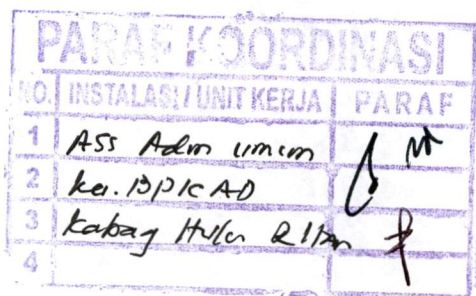 PARAF KOORDINASI
NO. INSTALASI / UNIT KERJA PARAF
1 Ass Adm umum
2 ka. BPKAD
3 Kabag Hukum
4